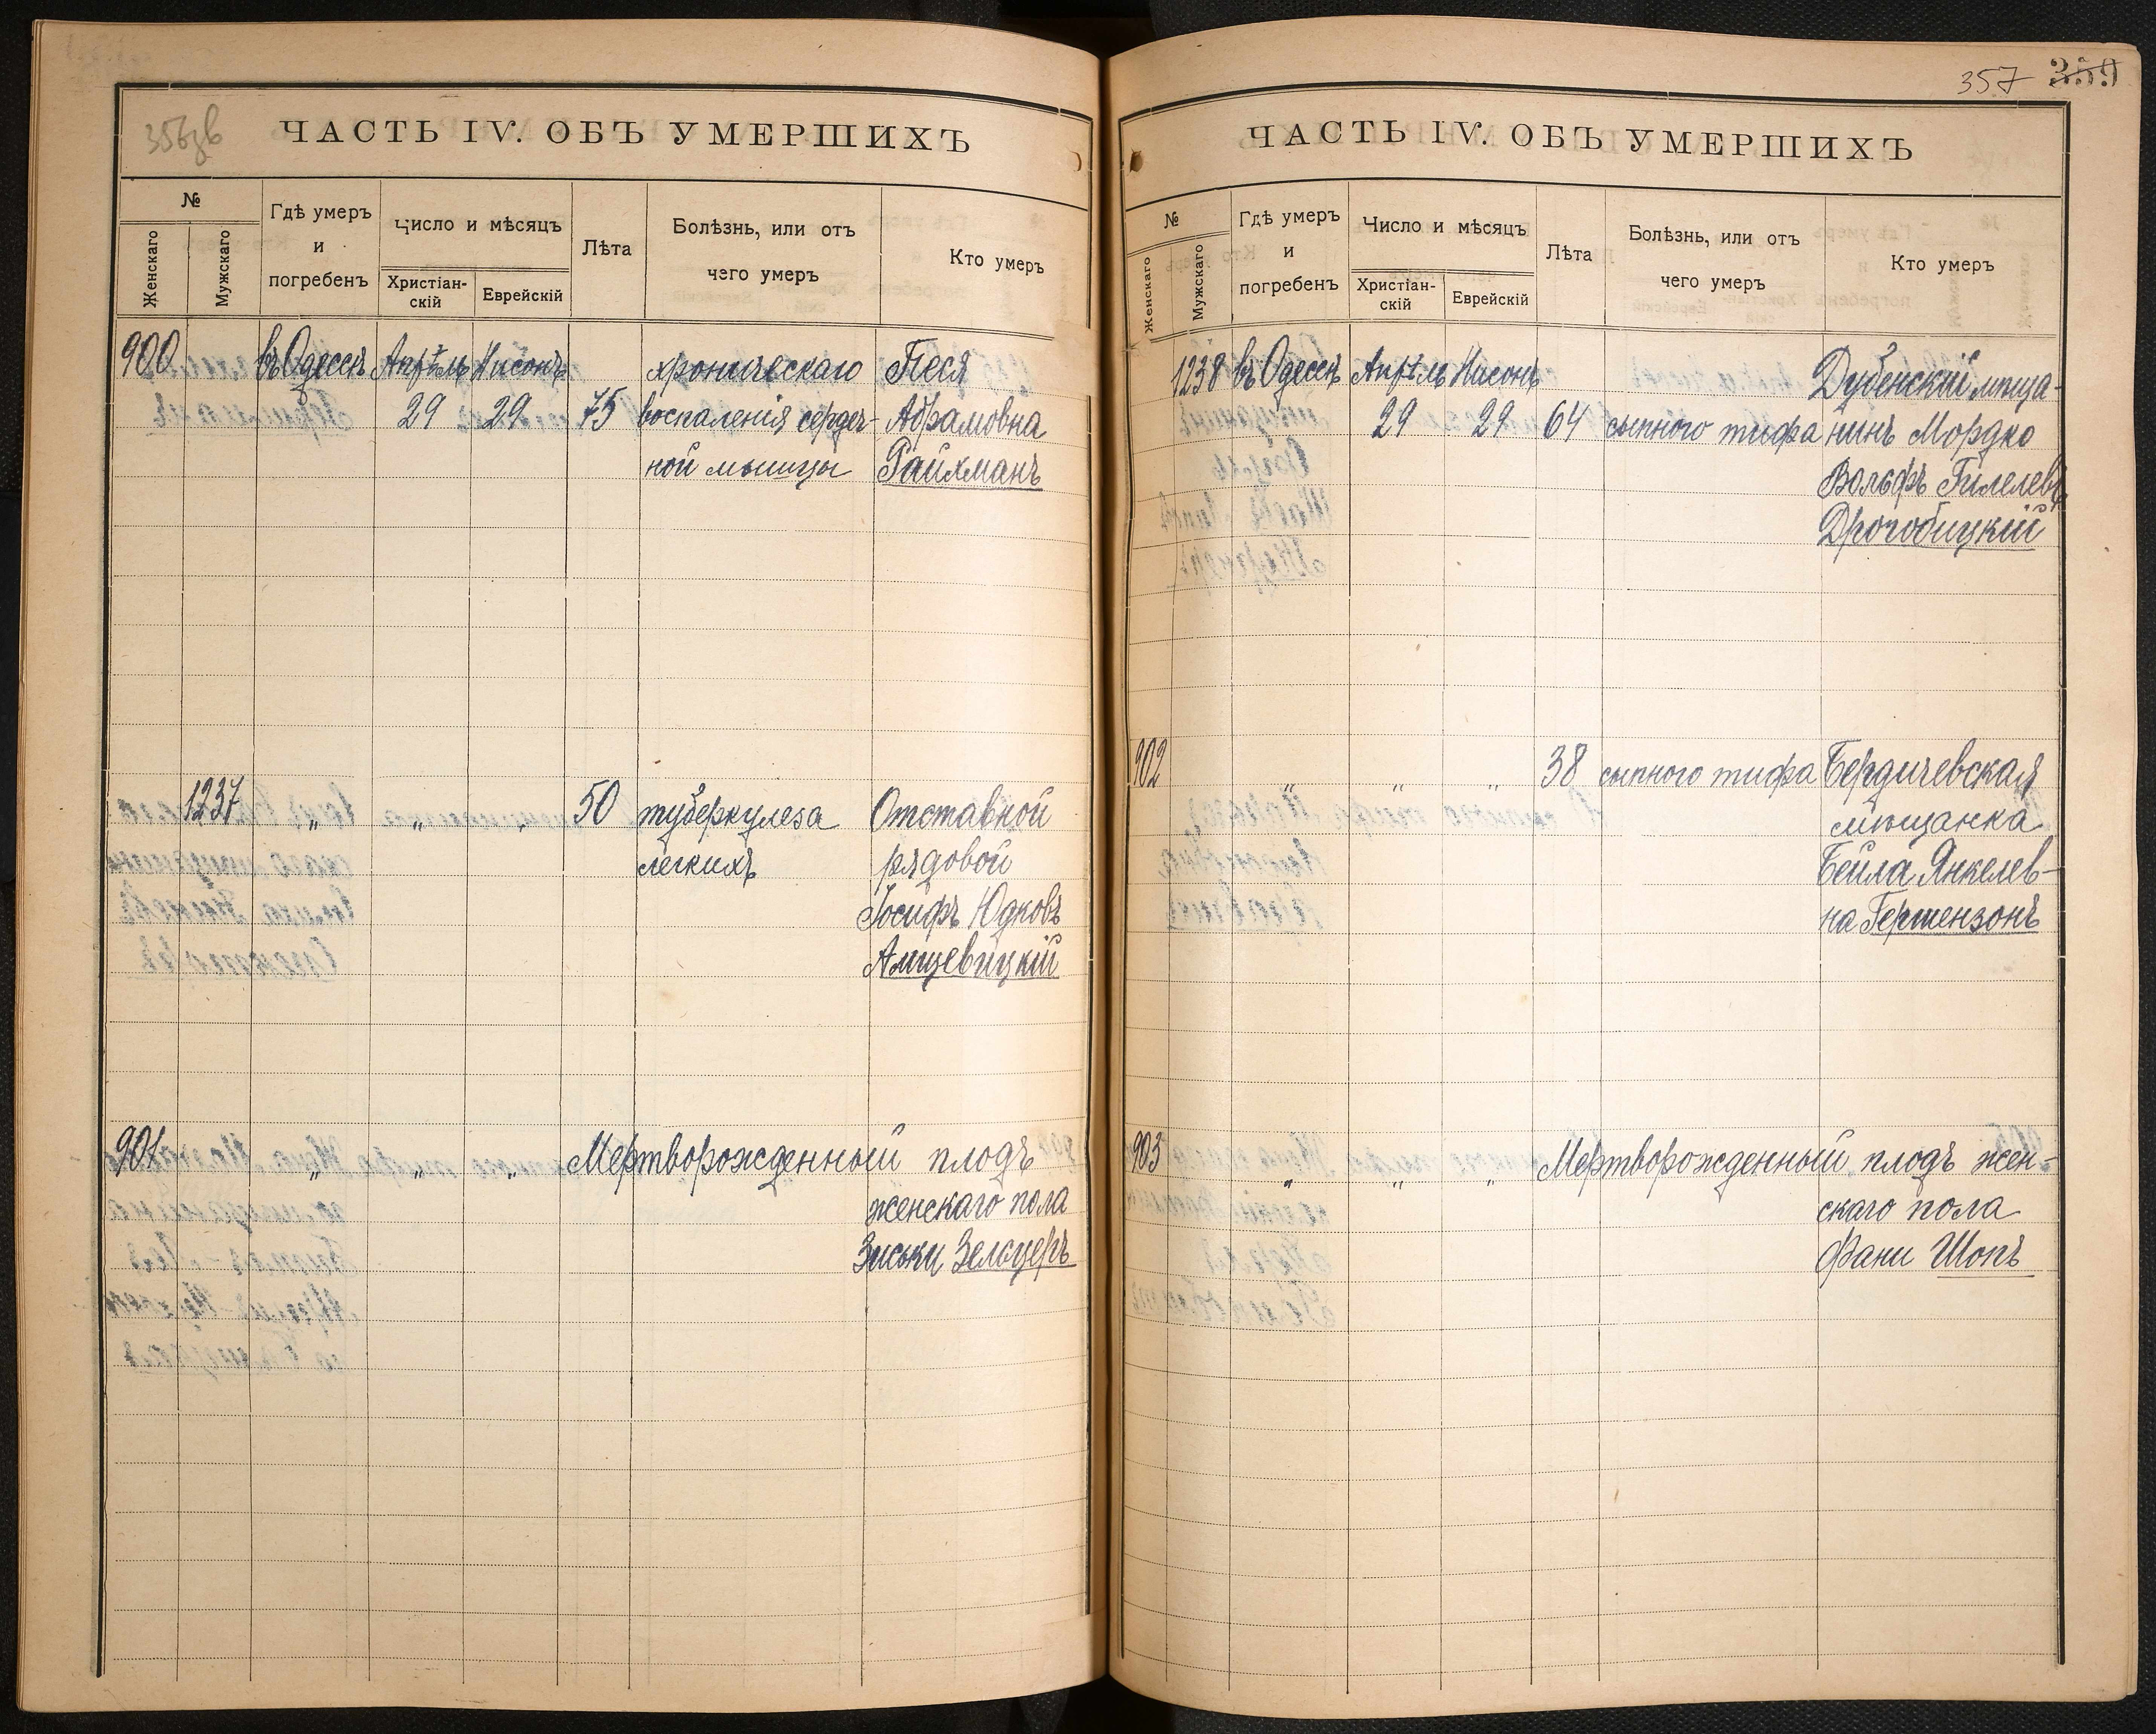 356зв
ЧАСТЬ IV. ОБЪ УМЕРШИХЪ
№
Женскаго
Мужскаго
Гдѣ умеръ
и
погребенъ
Число и мѣсяцъ
Христіан-
скій
Еврейскій
Лѣта
Болѣзнь, или отъ
чего умеръ
Кто умеръ
900 въ Одессѣ Апрѣль Нисонъ хроническаго Песя
29 29 75 воспаленія сердеч- Абрамовна
ной мышцы Райхманъ
1237 „ „ „ 50 туберкулеза Отставной
легкихъ рядовой
Іосифъ Юдковъ
Алицевицкій
901 „ „ „ Мертворожденный плодъ
женскаго пола
Зиськи Зельцеръ
357 359
ЧАСТЬ IV. ОБЪ УМЕРШИХЪ
№
Женскаго
Мужскаго
Гдѣ умеръ
и
погребенъ
Число и мѣсяцъ
Христіан-
скій
Еврейскій
Лѣта
Болѣзнь, или отъ
чего умеръ
Кто умеръ
1238 въ Одессѣ Апрѣль Нисонъ Дубенскій мѣща-
29 29 64 сыпного тифа нинъ Мордко
Вольфъ Гилелевъ
Дрогобицкій
902 „ „ „ 38 сыпного тифа Бердичевская
мѣщанка
Бейла Янкелев-
на Гершензонъ
903 „ „ „ Мертворожденный плодъ жен-
скаго пола
Фани Шопъ